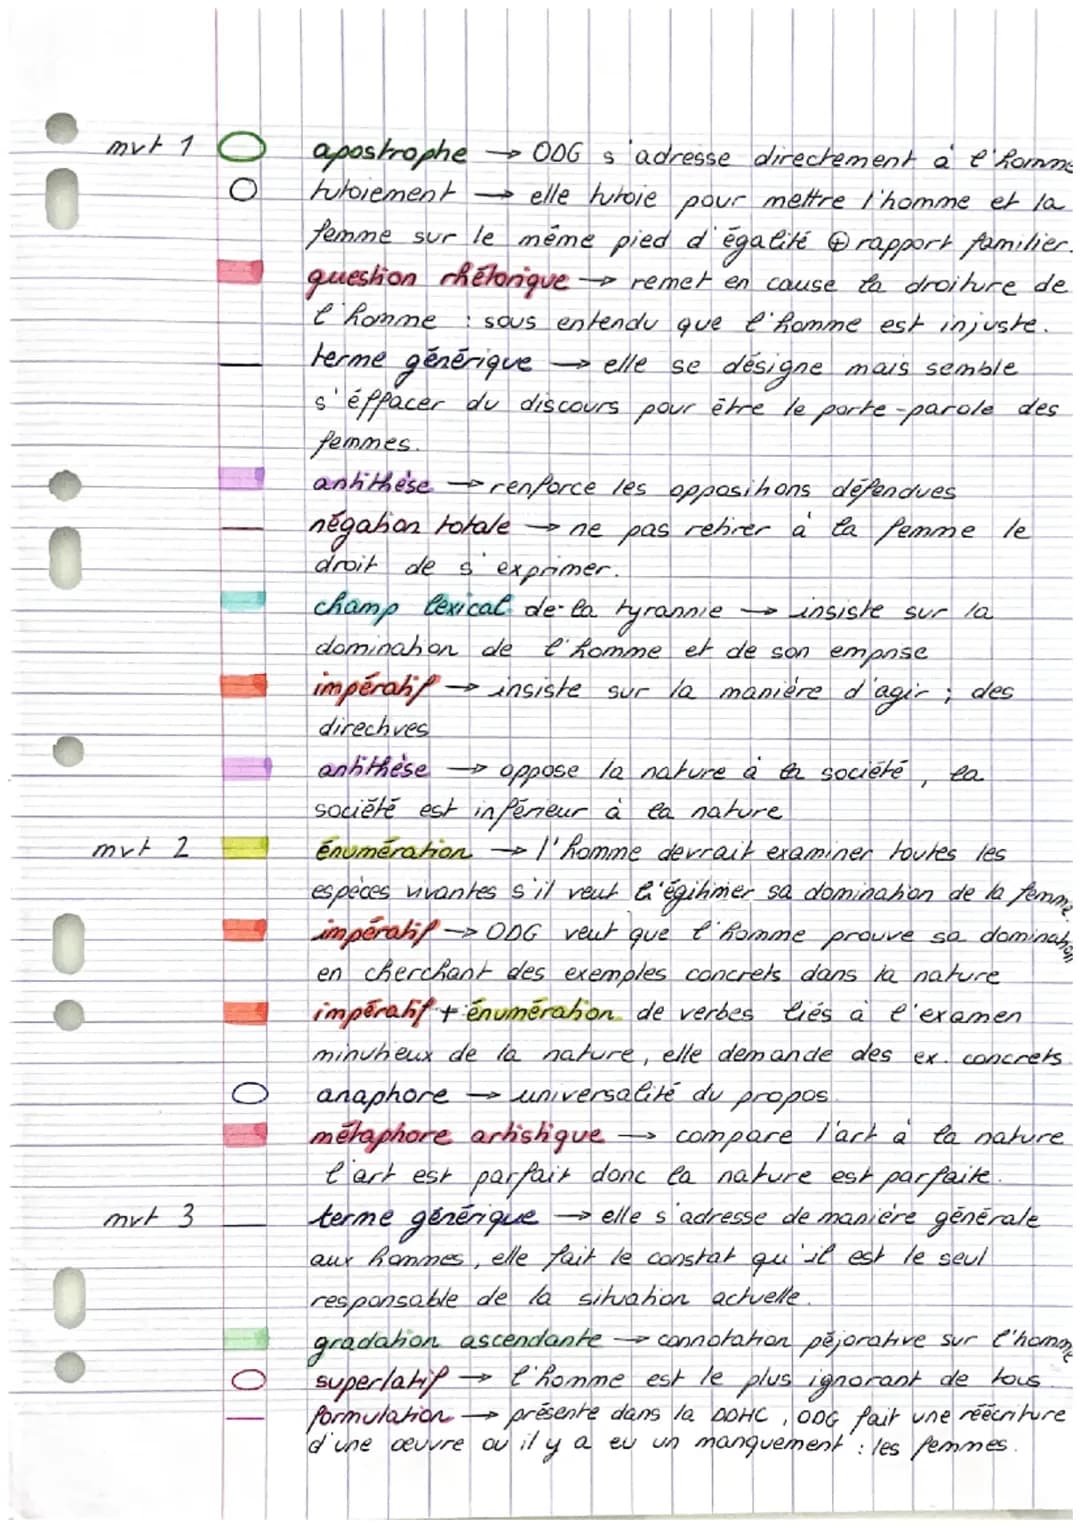 mvt 1 apostrophe → ODG s'adresse directement à l'homme
tutoiement → elle tutoie pour mettre l'homme et la
femme sur le même pied d'égalité ⊕ rapport familier.
question rhétorique → remet en cause la droiture de
l'homme : sous entendu que l'homme est injuste.
terme générique → elle se désigne mais semble
s'éffacer du discours pour être le porte-parole des
femmes.
antithèse → renforce les oppositions défendues
négation totale → ne pas retirer à la femme le
droit de s'exprimer.
champ lexical de la tyrannie → insiste sur la
domination de l'homme et de son emprise
impératif → insiste sur la manière d'agir ; des
directives
antithèse → oppose la nature à la société, la
société est inférieur à la nature
mvt 2 énumération → l'homme devrait examiner toutes les
espèces vivantes s'il veut l'égitimer sa domination de la femme.
impératif → ODG veut que l'homme prouve sa domination
en cherchant des exemples concrets dans la nature
impératif + énumération de verbes liés à l'examen
minutieux de la nature, elle demande des ex. concrets.
anaphore → universalité du propos.
métaphore artistique → compare l'art à la nature
l'art est parfait donc la nature est parfaite.
mvt 3 terme générique → elle s'adresse de manière générale
aux hommes, elle fait le constat qu'il est le seul
responsable de la situation actuelle.
gradation ascendante → connotation péjorative sur l'homme
superlatif → l'homme est le plus ignorant de tous.
formulation → présente dans la DDHC, ODG fait une réécriture
d'une œuvre ou il y a eu un manquement : les femmes.